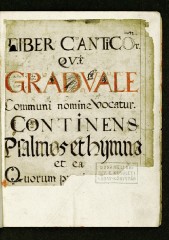 LIBER CANTICOr.
QVÆ
GRADVALE
Communi nomine vocatur.
CONTINENS
Psalmos et hymno
et ca
Quorum p